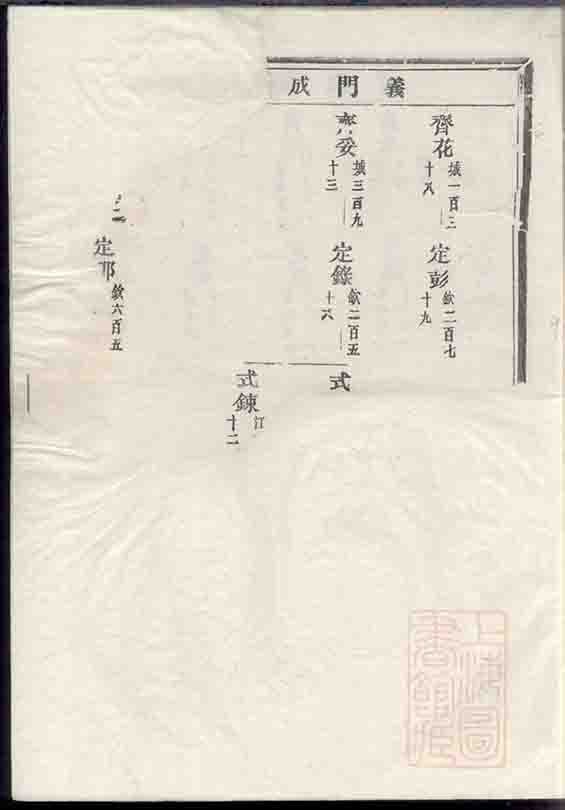 義門成
齊花 城一百三十八
定彭 欽二百七十九
妥 城三百九十三
定錄 欽二百五十六
式
式鍊 江十二
定邢 欽六百五
上海圖書館藏